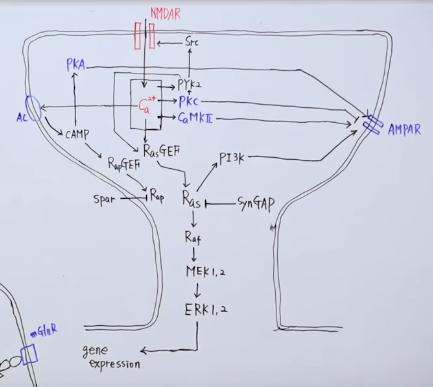 NMDAR
Src
PKA
PYK2
Ca2+
PKC
CaMKII
AC
AMPAR
cAMP
RasGEF
RapGEF
PI3K
Spar
Rap
Ras
SynGAP
Raf
MEK1,2
ERK1,2
mGluR
gene
expression